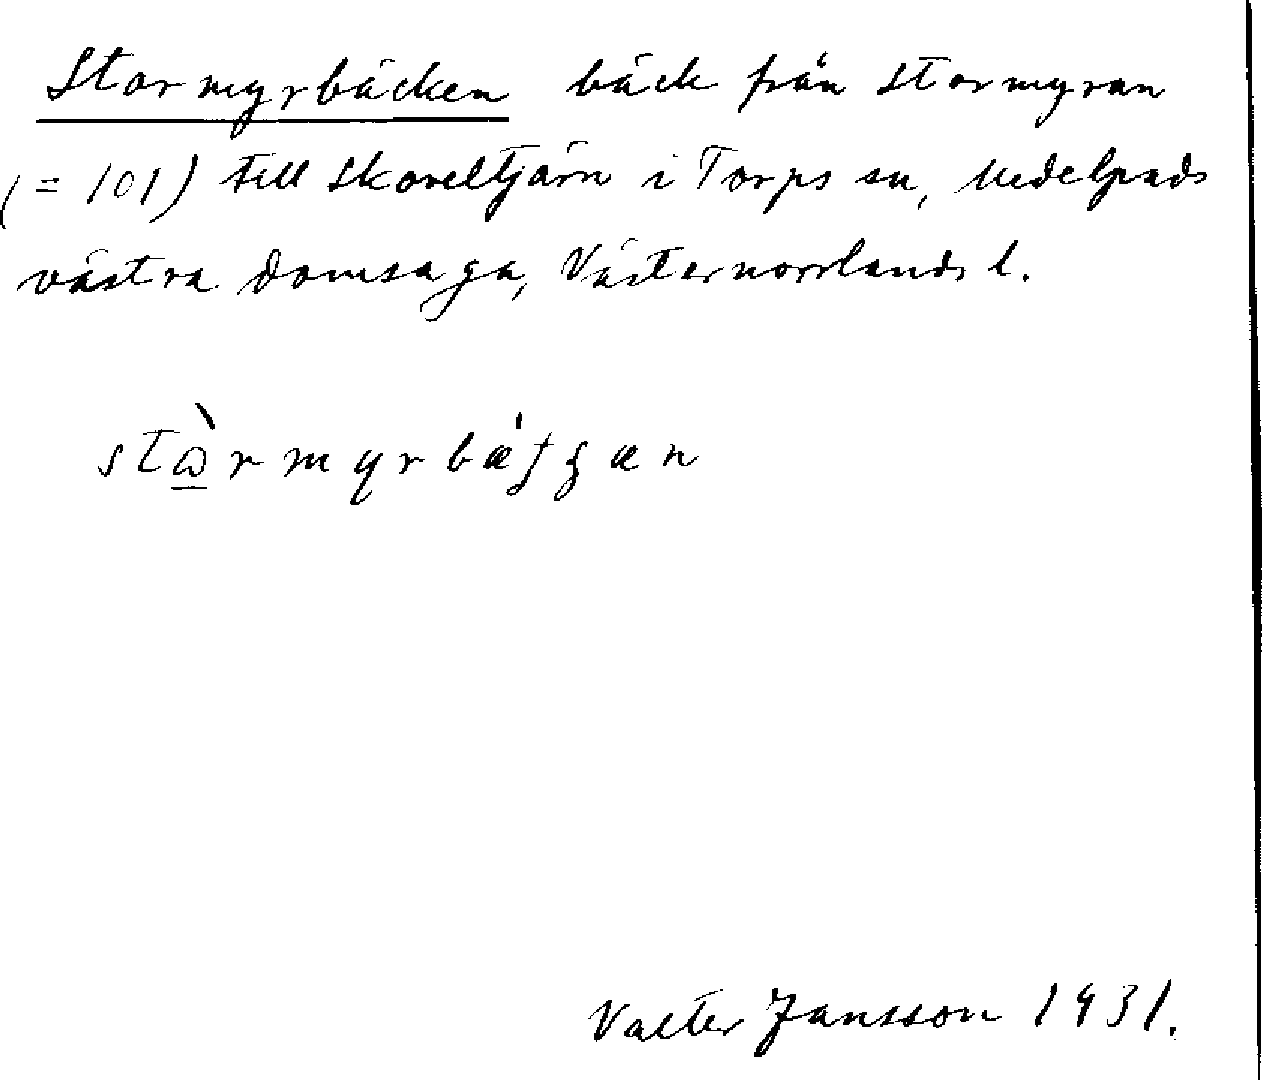 Stormyrbäcken bäck från Stormyran
(= 101) till Skoveltjärn i Torps sn, Medelpads
västra domsaga, Västernorrlands l.
Valter Jansson 1931.